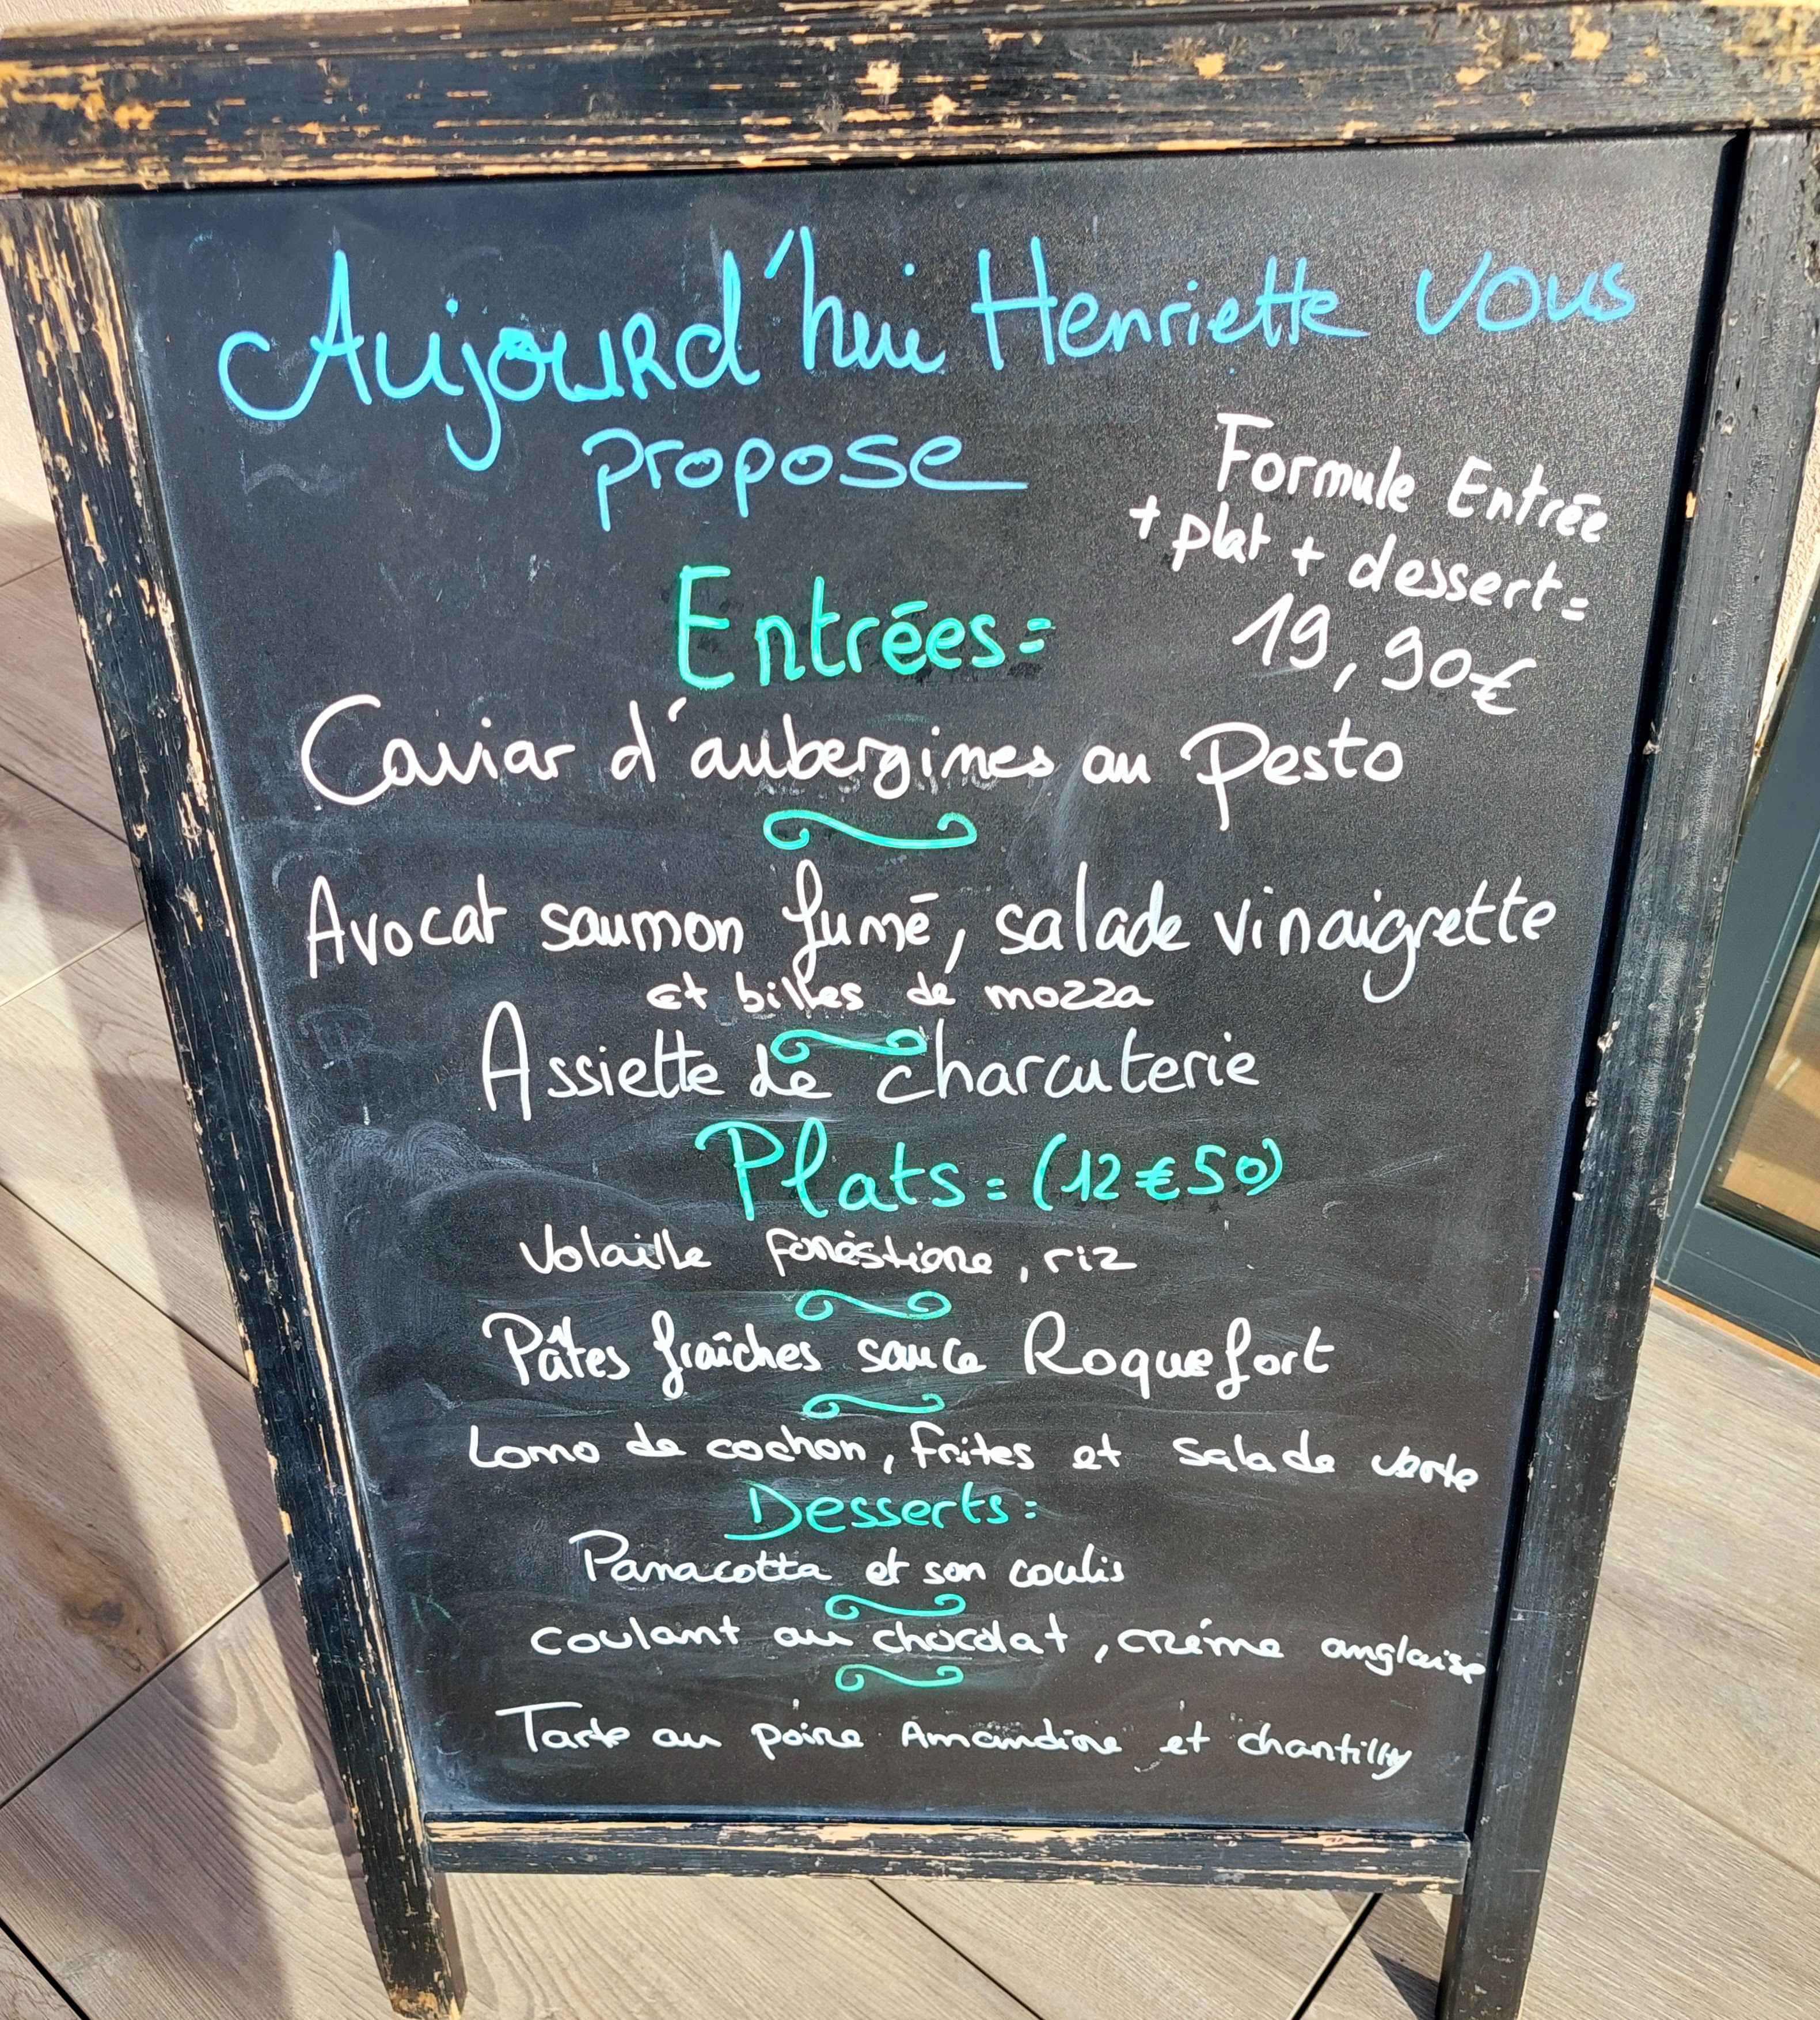 Aujourd'hui Henriette vous
propose
Formule Entrée
+ plat + dessert =
19,90€
Entrées =
Caviar d'aubergines au Pesto
Avocat saumon fumé, salade vinaigrette
et billes de mozza
Assiette de charcuterie
Plats = (12€50)
Volaille forestière, riz
Pâtes fraîches sauce Roquefort
Lomo de cochon, frites et salade verte
Desserts :
Panacotta et son coulis
coulant au chocolat, crème anglaise
Tarte au poire Amandine et chantilly